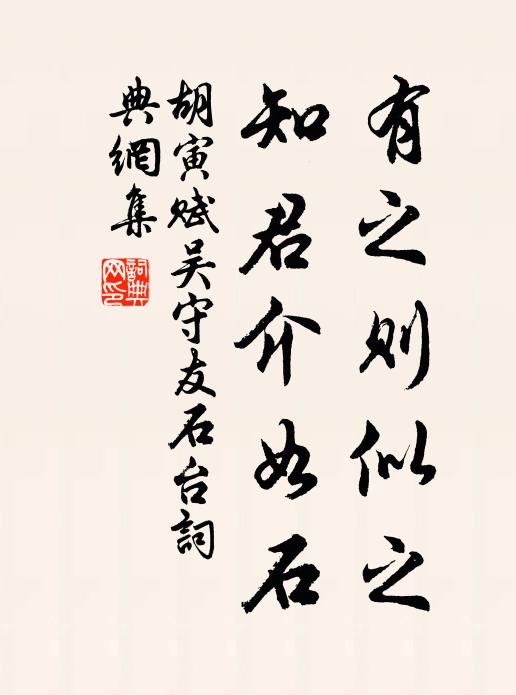 有之则似之
知君介如石
胡寅赋吴守友石台詞
典網集
詞典
网印